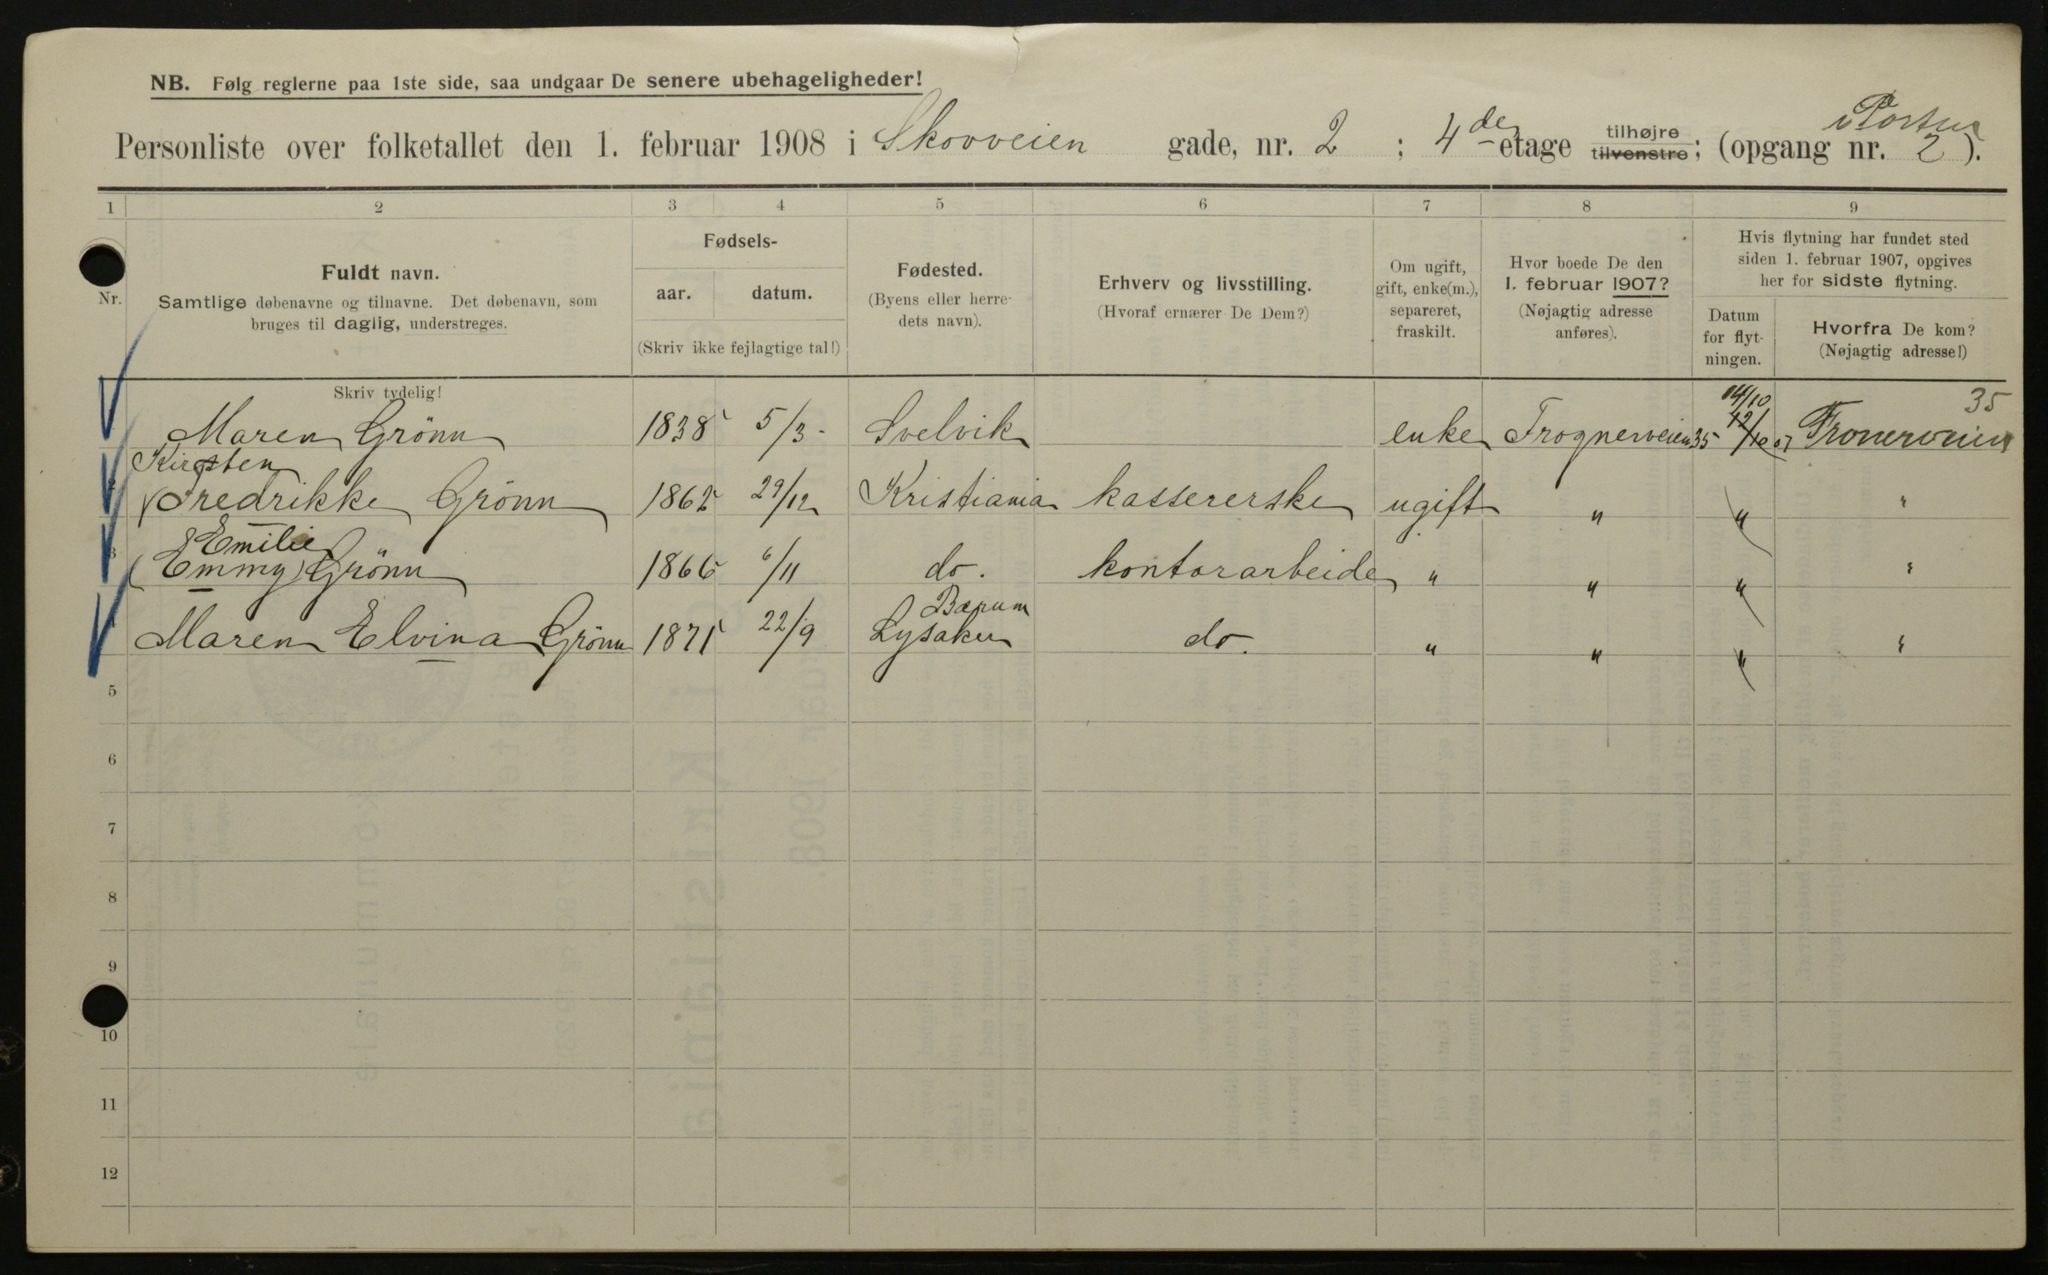 NB. Følg reglerne paa 1ste side, saa undgaar De senere ubehageligheder!
Personliste over folketallet den 1. februar 1908 i Skovveien gade, nr. 2 ; 4de etage tilhøjre tilvenstre; (opgang nr. 2 ).
1 2 3 4 5 6 7 8 9
Nr.
Fuldt navn.
Samtlige døbenavne og tilnavne. Det døbenavn, som
bruges til daglig, understreges.
Fødsels-
aar. datum.
(Skriv ikke fejlagtige tal!)
Fødested.
(Byens eller herre-
dets navn).
Erhverv og livsstilling.
(Hvoraf ernærer De Dem?)
Om ugift,
gift, enke(m.),
separeret,
fraskilt.
Hvor boede De den
1. februar 1907?
(Nøjagtig adresse
anføres).
Hvis flytning har fundet sted
siden 1. februar 1907, opgives
her for sidste flytning.
Datum
for flyt-
ningen.
Hvorfra De kom?
(Nøjagtig adresse!)
Skriv tydelig!
14/10 35
Maren Grönn 1838 5/3 Svelvik enke Frognerveien 35 12/10 07 Fronerveien
Kirsten
(Fredrikke Grönn 1862 29/12 Kristiania kassererske ugift " " "
Emilie
3 (Emmy) Grönn 1866 6/11 do. kontorarbeide " " " "
Bærum
Maren Elvina Grönn 1871 22/9 Lysaker do. " " " "
5
6
7
8
9
10
11
12